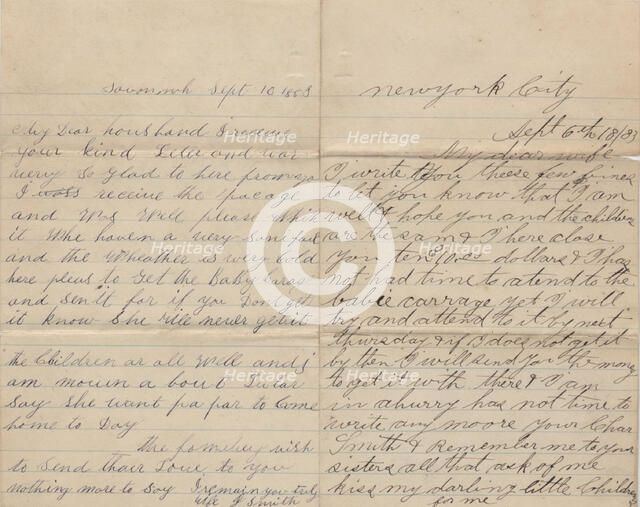 Savannah Sept 10 1883
My Dear houshand I receive
your kind Leter and was
very So Glad to here from you
I receive the pacage
and Was Well please With
it Whe haven a very
and the Wheather is very cold
here pleas to Get the BaBy
and Sen it for if you Dont get
it know She Will never get it
the Children ar all Well and
am a bout
Say She want pa par to Come
home to Day
the famely wish
to Send thair Love to you
nothing more to Say I remain you truly
Wife Smith
newyork City
Sept 6th 18/83
My dear wife
I write you theese few lines
to let you know that I am
well & hope you and the children
are the sam & I here close
you ten dollars & I has
not had time to atend to the
babie carrage yet I will
try and attend to it by next
thursday & if I does not get it
by then I will send you the money
to get it with there & I am
in a hurry has not time to
write any moore your Char
Smith & Remember me to your
sisters all that ask of me
kiss my darling little Children
for me
Heritage